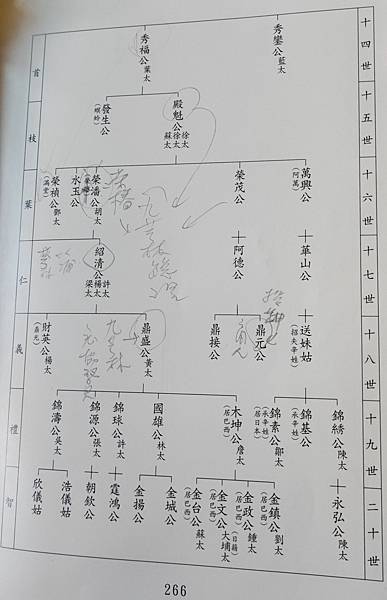 十四世
秀鑾公 藍太
秀福公 葉太
首
十五世
殿魁公 徐太 徐太 蘇太
發生公 (螟蛉)
枝
十六世
萬興公 (阿萬)
榮茂公
榮潘公 胡太
水玉公
榮禎公 鄭太
葉
十七世
華山公
阿德公
紹清公 許太 楊太 梁太
仁
十八世
送妹姑 (招夫辛姓)
鼎元公
鼎接公
鼎盛公 黃太
財英公 楊太 (鼎光)
義
十九世
錦綉公 陳太
錦基公 (承辛姓)
錦素公 鄒太 (承辛姓) (居日本)
木坤公 詹太 (居巴西)
國雄公 林太
錦球公 許太
錦源公 張太
錦濤公 吳太
禮
二十世
永弘公 陳太
金鎮公 劉太 (居巴西)
金政公 鍾太 (居巴西)
金文公 大埔太 (居巴西) (日籍)
金台公 蘇太 (居巴西)
金城公
金揚公
霆鴻公
朝欽公
浩儀姑
欣儀姑
智
266